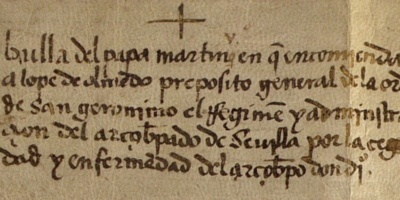 bulla del papa martin v en q̃ encomienda
a lope de olmedo preposito general de la ord
de san geronimo el Regimẽ y administra
çion del arçobp̃ado de Sevilla por la çegue
dad y enfermedad del arçobp̃o don di.º